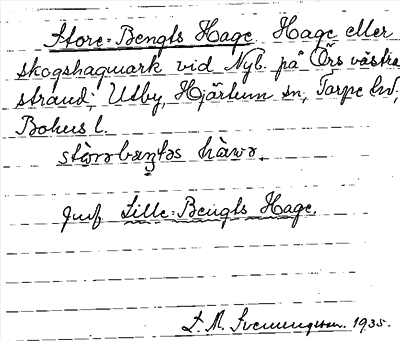 Store-Bengts Hage. Hage eller
skogshagmark vid Nyb. på Örs västra
strand; Utby, Hjärtum sn, Torpe hd,
Bohus l.
stòrəbæŋtəs hàwə.
Jmf Lille-Bengts Hage.
D. M. Svenungsson. 1935.